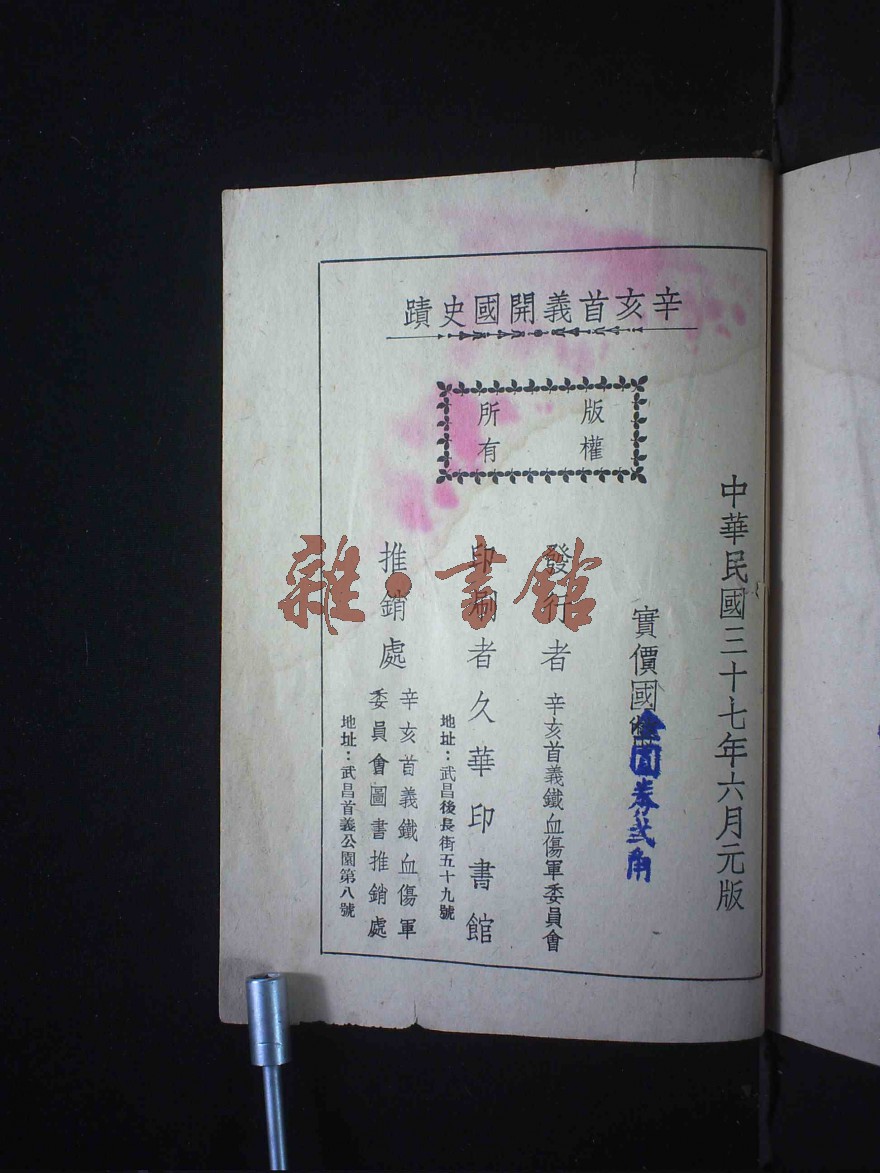 辛亥首義開國史蹟
版權
所有
中華民國三十七年六月元版
實價國幣
金圓券弍角
發行者 辛亥首義鐵血傷軍委員會
印刷者 久華印書館
地址：武昌後長街五十九號
推銷處 辛亥首義鐵血傷軍
委員會圖書推銷處
地址：武昌首義公園第八號
雜·書館